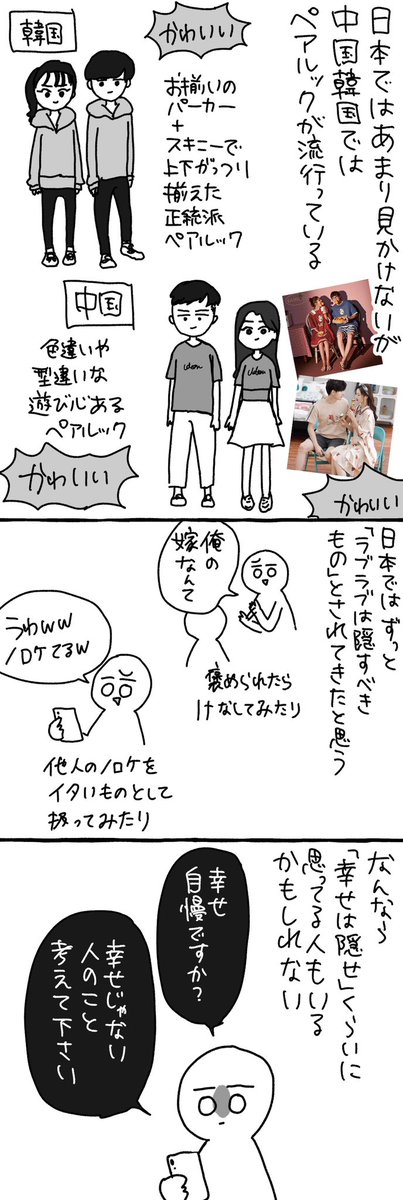 日本ではあまり見かけないが
中国韓国では
ペアルックが流行っている
韓国
かわいい
お揃いの
パーカー
+
スキニーで
上下がっつり
揃えた
正統派
ペアルック
中国
色違いや
型違いな
遊び心ある
ペアルック
かわいい
かわいい
日本では ずっと
「ラブラブは隠すべき
もの」とされてきたと思う
俺の
嫁なんて
褒められたら
けなしてみたり
うわww
ノロケてるw
他人のノロケを
イタいものとして
扱ってみたり
なんなら
「幸せは隠せ」くらいに
思ってる人もいる
かもしれない
幸せ
自慢ですか？
幸せじゃない
人のこと
考えて下さい